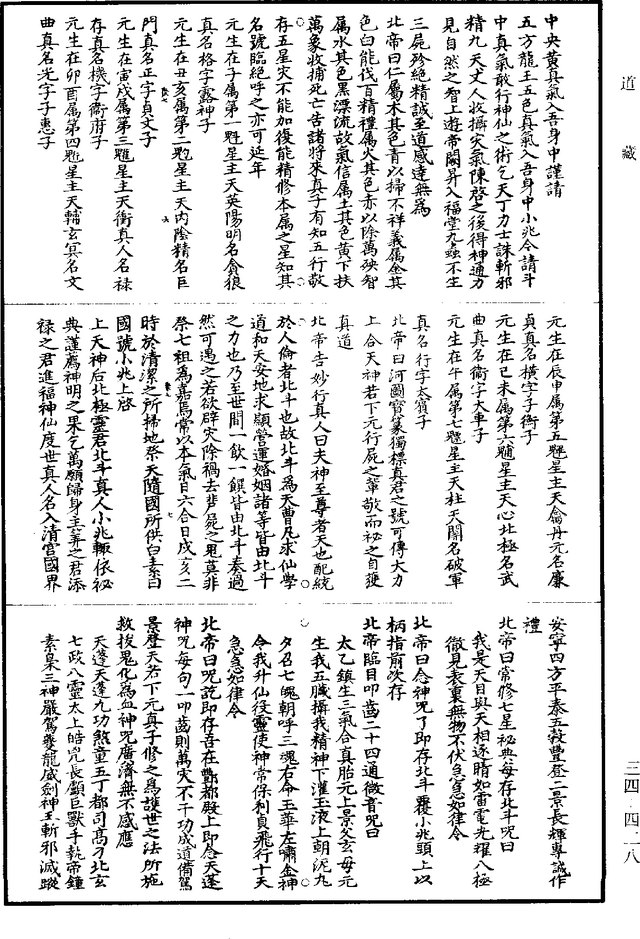 道藏
中央黃真氣入吾身中謹請
五方龍王五色真氣入吾身中小兆今請斗
中真氣敢行神仙之術乞天丁力士誅斬邪
精九天丈人收攝灾氣陳啓之後得神通力
見自然之智上遊帝闕昇入福堂九蟲不生
三屍殄絕精誠至道感達無為
北帝曰仁屬木其色青以掃不祥義屬金其
色白能伐百精禮屬火其色赤以除萬殃智
屬水其色黑漂流故氣信屬土其色黃下扶
萬象收捕死亡告諸將來真子有知五行敬
存五星灾不能加復能精修本屬之星知其
名號臨絕呼之亦可延年
元生在子屬第一魁星主天英陽明名貪狼
真名格字露神子
元生在丑亥屬第二星主天內陰精名巨
門真名正字貞文子
元生在寅戌屬第三星主天衝真人名祿
存真名機字衞府子
元生在卯酉屬第四星主天輔玄冥名文
曲真名光字子惠子
元生在辰申屬第五星主天禽丹元名廉
貞真名橫字子衞子
元生在巳未屬第六星主天心北極名武
曲真名衞字大車子
元生在午屬第七星主天柱天關名破軍
真名行字太賓子
北帝曰河圖寶籙獨標真君之號可傳大力
上合天神若下元行屍之輩敬而祕之自獲
真道
北帝告妙行真人曰夫神至尊者天也配統
於人倫者北斗也故北斗為天曹凡求仙學
道和天安地求顯營運婚姻諸等皆由北斗
之力也乃至世間一飲一饌皆由北斗奏過
然可遇之若欲辟灾除禍去悲屍之鬼莫非
祭七祖為嘉焉常以本氣日六合日戌亥二
時於清潔之所掃地祭天隨國所供白素曰
國號小兆上啓
上天神后北極靈君北斗真人小兆輙依祕
典謹薦神明之果乞萬願歸身主筭之君添
祿之君進福神仙度世真人名入清宮國界
安寧四方平泰五穀豐登二景長輝專誠作
禮
北帝曰常修七星祕典每存北斗呪曰
我是天目與天相逐睛如雷電光耀八極
徹見表裏無物不伏急急如律令
北帝曰念神呪了即存北斗覆小兆頭上以
柄指前次存
北帝臨目叩齒二十四通微音呪曰
太乙鎮生三氣合真胎元上景父玄母元
生我五臟攝我精神下灌玉液上朝泥丸
夕召七魄朝呼三魂右命玉華左嘯金神
令我升仙役靈使神常保利貞飛行十天
急急如律令
北帝曰呪訖即存吾在酆都殿上即念天蓬
神呪每句一叩齒則萬灾不干功成道備駕
景歷天若下元真子修之為護世之法所施
救拔鬼化為血神呪廣濟無不感應
天蓬天蓬九功煞童五丁都司高刀北玄
七政八靈太上皓兇長顱巨獸手執帝鐘
素梟三神嚴駕夔龍威劍神王斬邪滅蹤
三四·四二八